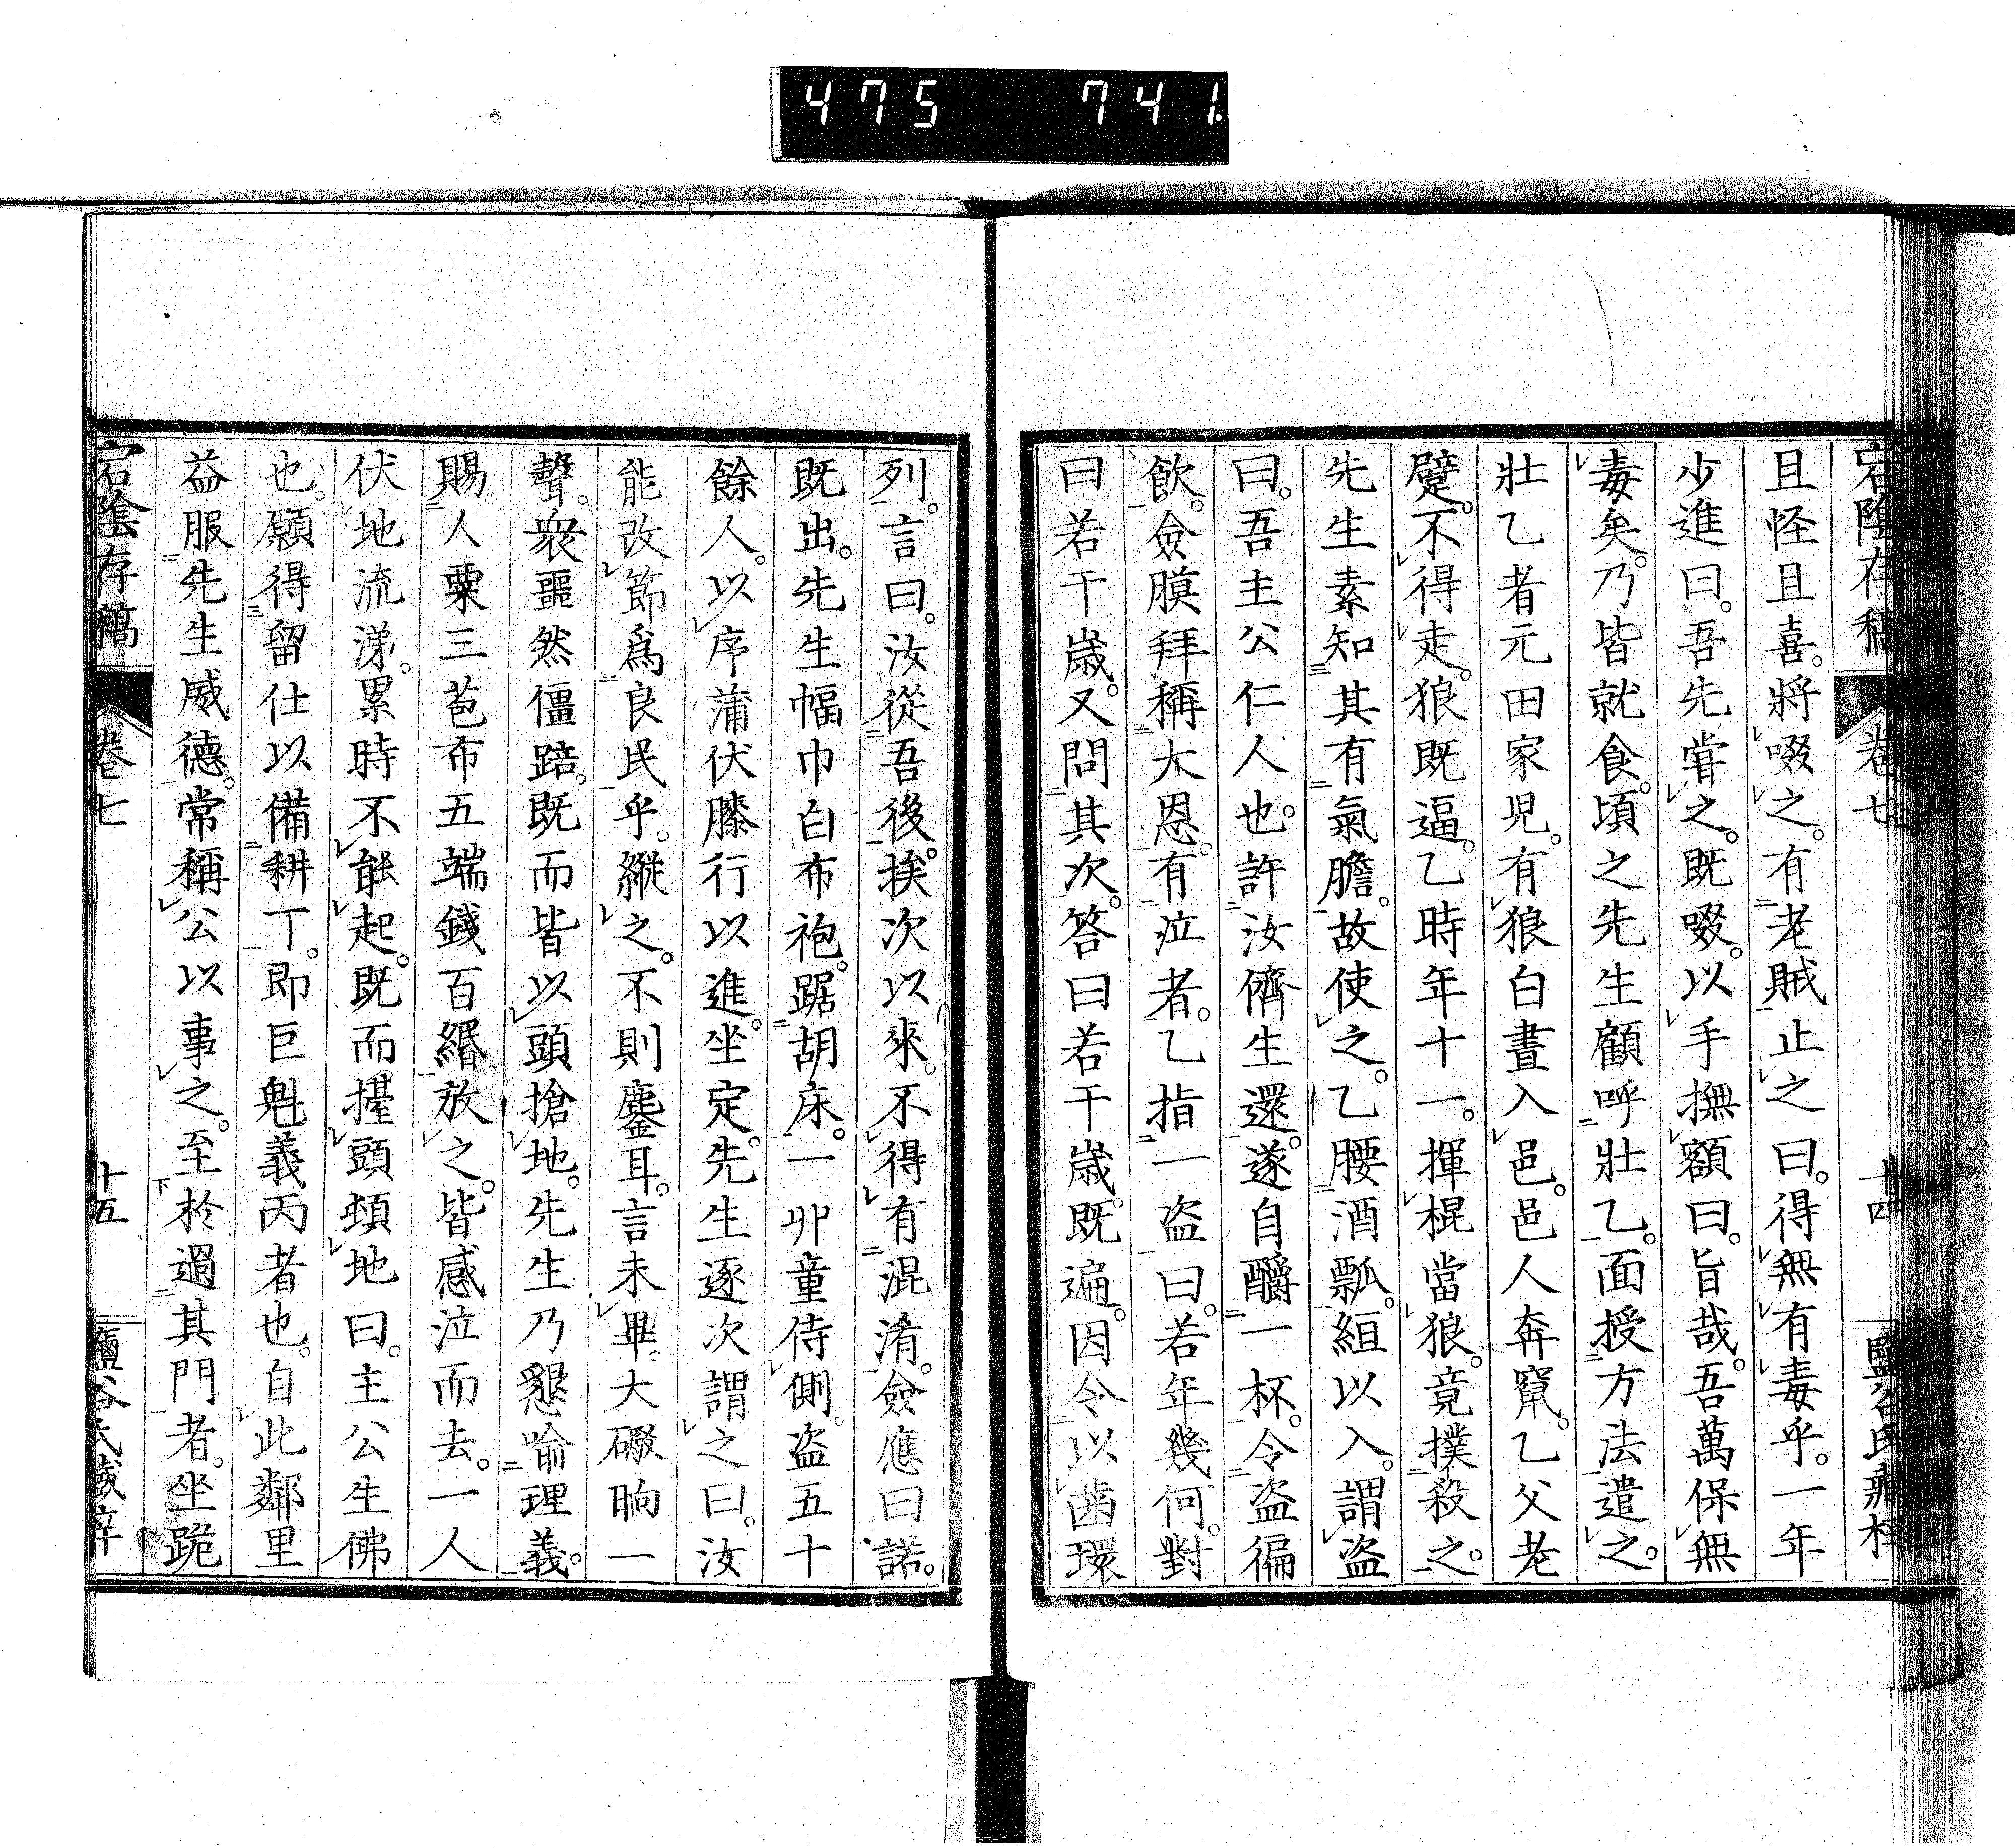 475 741
宕陰存稿 卷七 十四 鹽谷氏藏梓
且怪且喜。將啜之。有老賊止之曰。得無有毒乎。一年
少進曰。吾先嘗之。既啜。以手撫額曰。旨哉。吾萬保無
毒矣。乃皆就食。頃之先生顧呼壯乙。面授方法遣之。
壯乙者元田家児。有狼白晝入邑。邑人奔竄。乙父老
躄。不得走。狼既逼。乙時年十一。揮棍當狼。竟撲殺之。
先生素知其有氣膽。故使之。乙腰酒瓢。絙以入。謂盗
曰。吾主公仁人也。許汝儕生還。遂自釂一杯。令盗徧
飲。僉膜拜稱大恩。有泣者。乙指一盗曰。若年幾何。對
曰若干歳。又問其次。答曰若干歳。既遍。因令以齒環
列。言曰。汝從吾後。挨次以來。不得有混淆。僉應曰諾。
既出。先生幅巾白布袍。踞胡床。一丱童侍側。盗五十
餘人。以序蒲伏膝行以進。坐定。先生逐次謂之曰。汝
能改節爲良民乎。縱之。不則鏖耳。言未畢。大礮晌一
聲。衆噩然僵踣。既而皆以頭搶地。先生乃懇喻理義。
賜人粟三苞布五端錢百緡放之。皆感泣而去。一人
伏地流涕。累時不能起。既而擡頭頓地曰。主公生佛
也。願得留仕以備耕丁。即巨魁義丙者也。自此鄰里
益服先生威德。常稱公以事之。至於過其門者。坐跪
宕陰存稿 卷七 十五 鹽谷氏藏梓